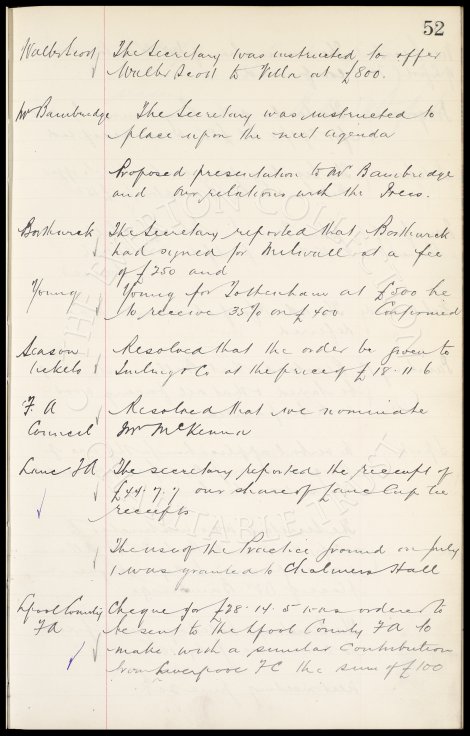 52
Walter Scott The Secretary was instructed to offer
Walter Scott to Villa at £800.
Mr Bambridge The Secretary was instructed to
place upon the next agenda
Proposed presentation to Mr Bambridge
and our relations with the Press.
Borthwick The Secretary reported that Borthwick
had signed for Millwall at a fee
of £250 and
Young Young for Tottenham at £500 he
to receive 35% on £400 Confirmed
Season Resolved that the order be given to
tickets & Co at the price of £18-11-6
F. A Resolved that we nominate
Council Mr McKenna
Lanc FA The secretary reported the receipt of
£44.7.7 our share of Lanc Cup tie
receipts
The use of the Practice ground on July
1 was granted to Chalmers Hall
Lpool County Cheque for £28.14.5 was ordered to
FA be sent to the Lpool County FA to
make with a similar contribution
from Liverpool FC the sum of £100